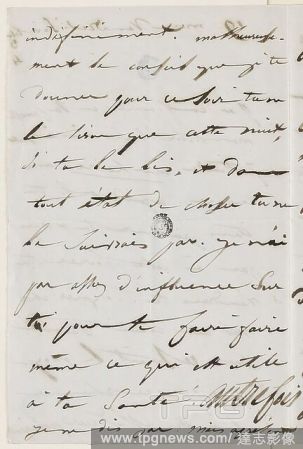 indéfiniment. malheureuse-
ment le conseil que je te
donne pour ce soir tu ne
le liras que cette nuit,
si tu le lis, et dans
tout état de choses tu ne
le suivrais pas. je n'ai
pas assez d'influence sur
toi pour te faire faire
même ce qui est utile
à ta santé. autrefois
je ne dis pas
TPG
www.tpgnews.com/達志影像